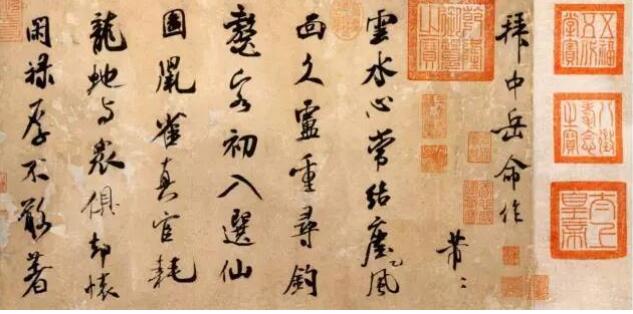 五福五代堂寶
八徵耄念之寶
太上皇帝
拜中岳命作
芾
乾隆御覽之寶
雲水心常結塵風
面久盧重尋釣
鼇客初入選仙
圖鼠雀真官耗
龍蛇与衆俱却懷
閑祿厚不敢著